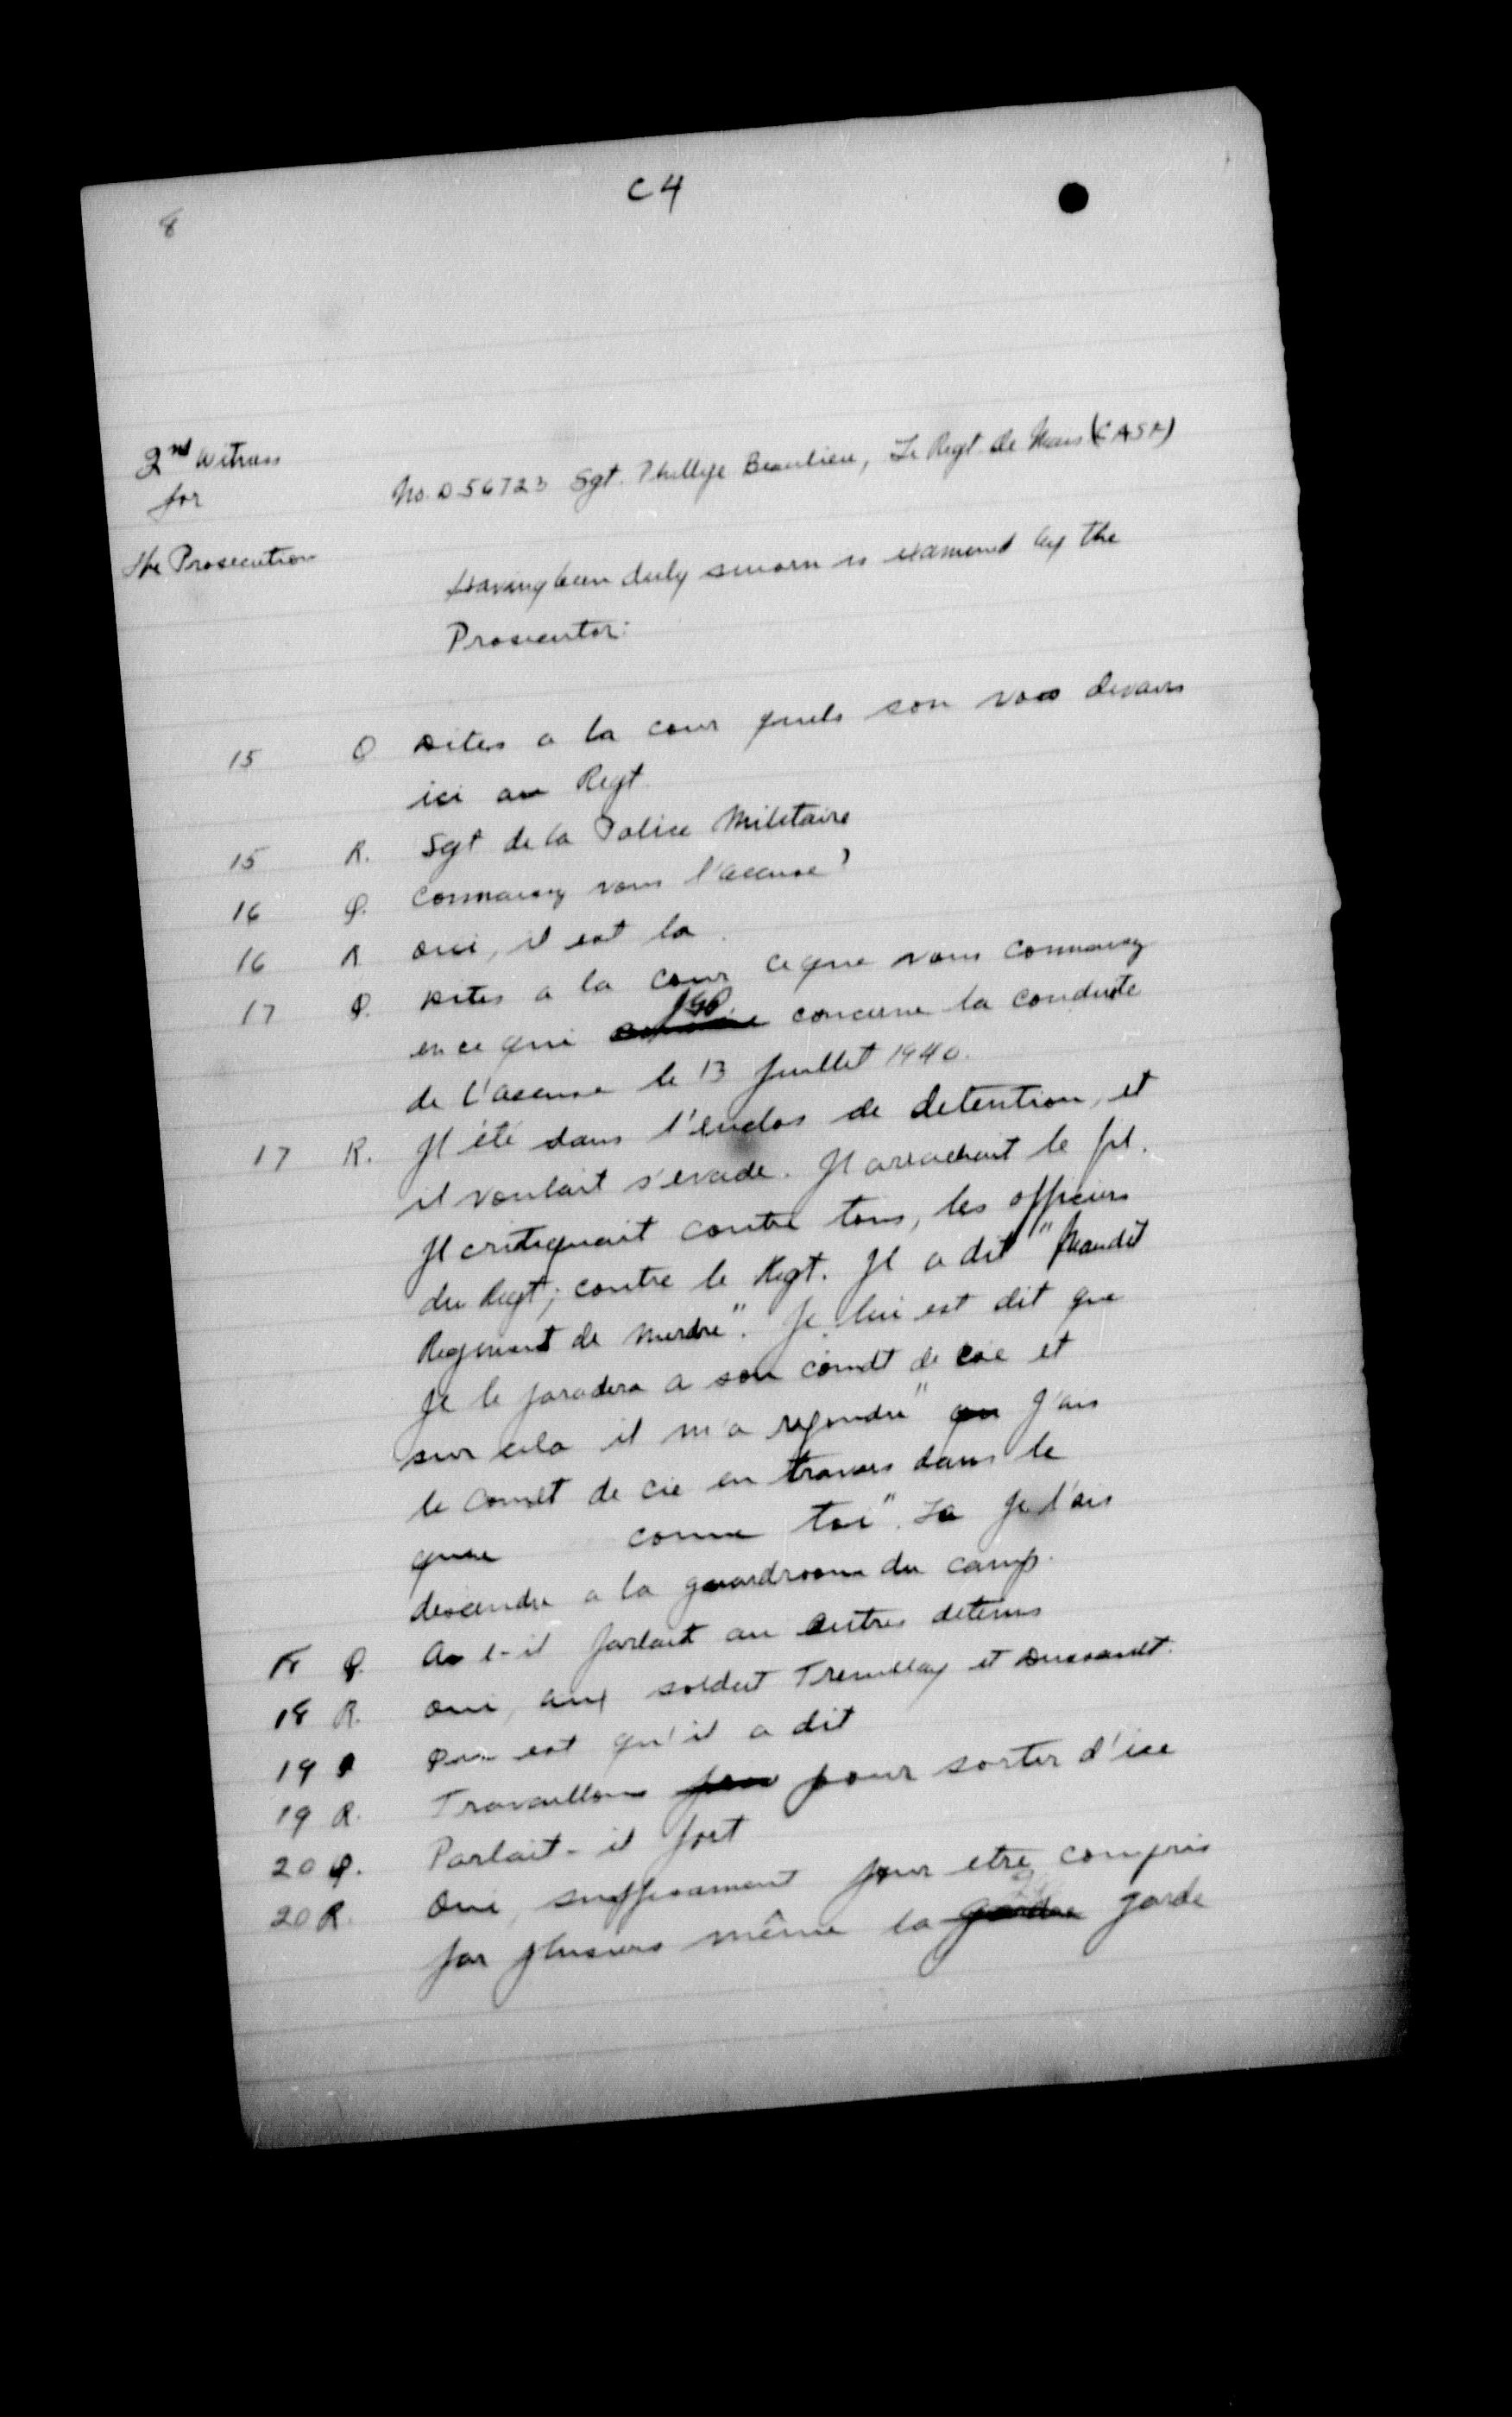 C4
8
2nd Witness
for
the Prosecution
No. D 56723 Sgt. Phillipe Beaulieu, Le Regt de Mais (CASF)
Having been duly sworn is examined by the
Prosecutor:
15 Q Dites a la cour quels son vos devoirs
ici au Regt.
15 R. Sgt de la Police Militaire
16 Q. Connaissez vous l'accuse?
16 R oui, il est la.
17 Q. Dites a la cour ce que vous connaissez
en ce qui concerne la conduite
de l'accuse le 13 Juillet 1940.
17 R. Il été dans l'enclos de detention, et
il voulait s'evade. Il arrachait le fil.
Il critiquait contre tous, les officiers
du Regt; contre le Regt. Il a dit "Maudit
Regiment de merdre". Je lui est dit que
je le paradera a son comdt de cie et
sur cela il m'a repondu " j'ais
le comdt de cie en travers dans le
comme toi". La je l'ais
descendre a la guardroom du camp.
18 Q. A t-il parlait au autres detenus
18 R. oui, aux soldat Tremblay et Dussault.
19 Q est qu'il a dit
19 R. Travaillons pour sortir d'ice
20 Q. Parlait-il fort
20 R. Oui, suffisament pour etre compris
par plusiers même la garde